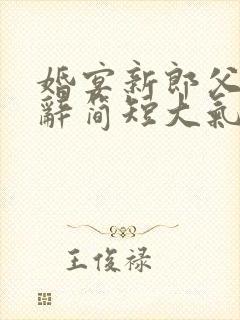 婚宴新郎父
辭简短大氣
王俊禄